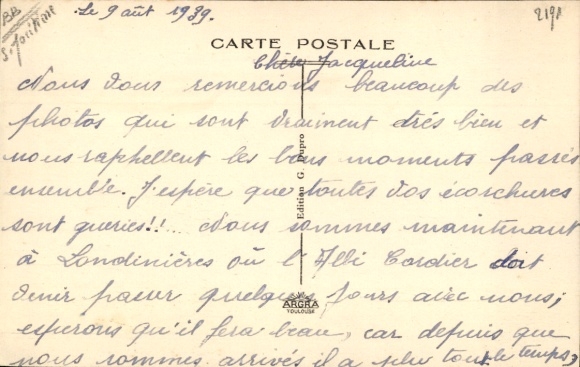 BB
Le 9 août 1939.
2191
CARTE POSTALE
Chère Jacqueline
Nous vous remercions beaucoup des
photos qui sont vraiment très bien et
nous raphellent les bons moments passés
ensemble. J'espère que toutes vos écorchures
sont gueries!!... Nous sommes maintenant
à Londinières où l'Abbé Cordier doit
venir passer quelques jours avec nous;
esperons qu'il fera beau, car depuis que
nous sommes arrivés il a plu tout le temps,
Edition G. Dupro
ARGRA
TOULOUSE